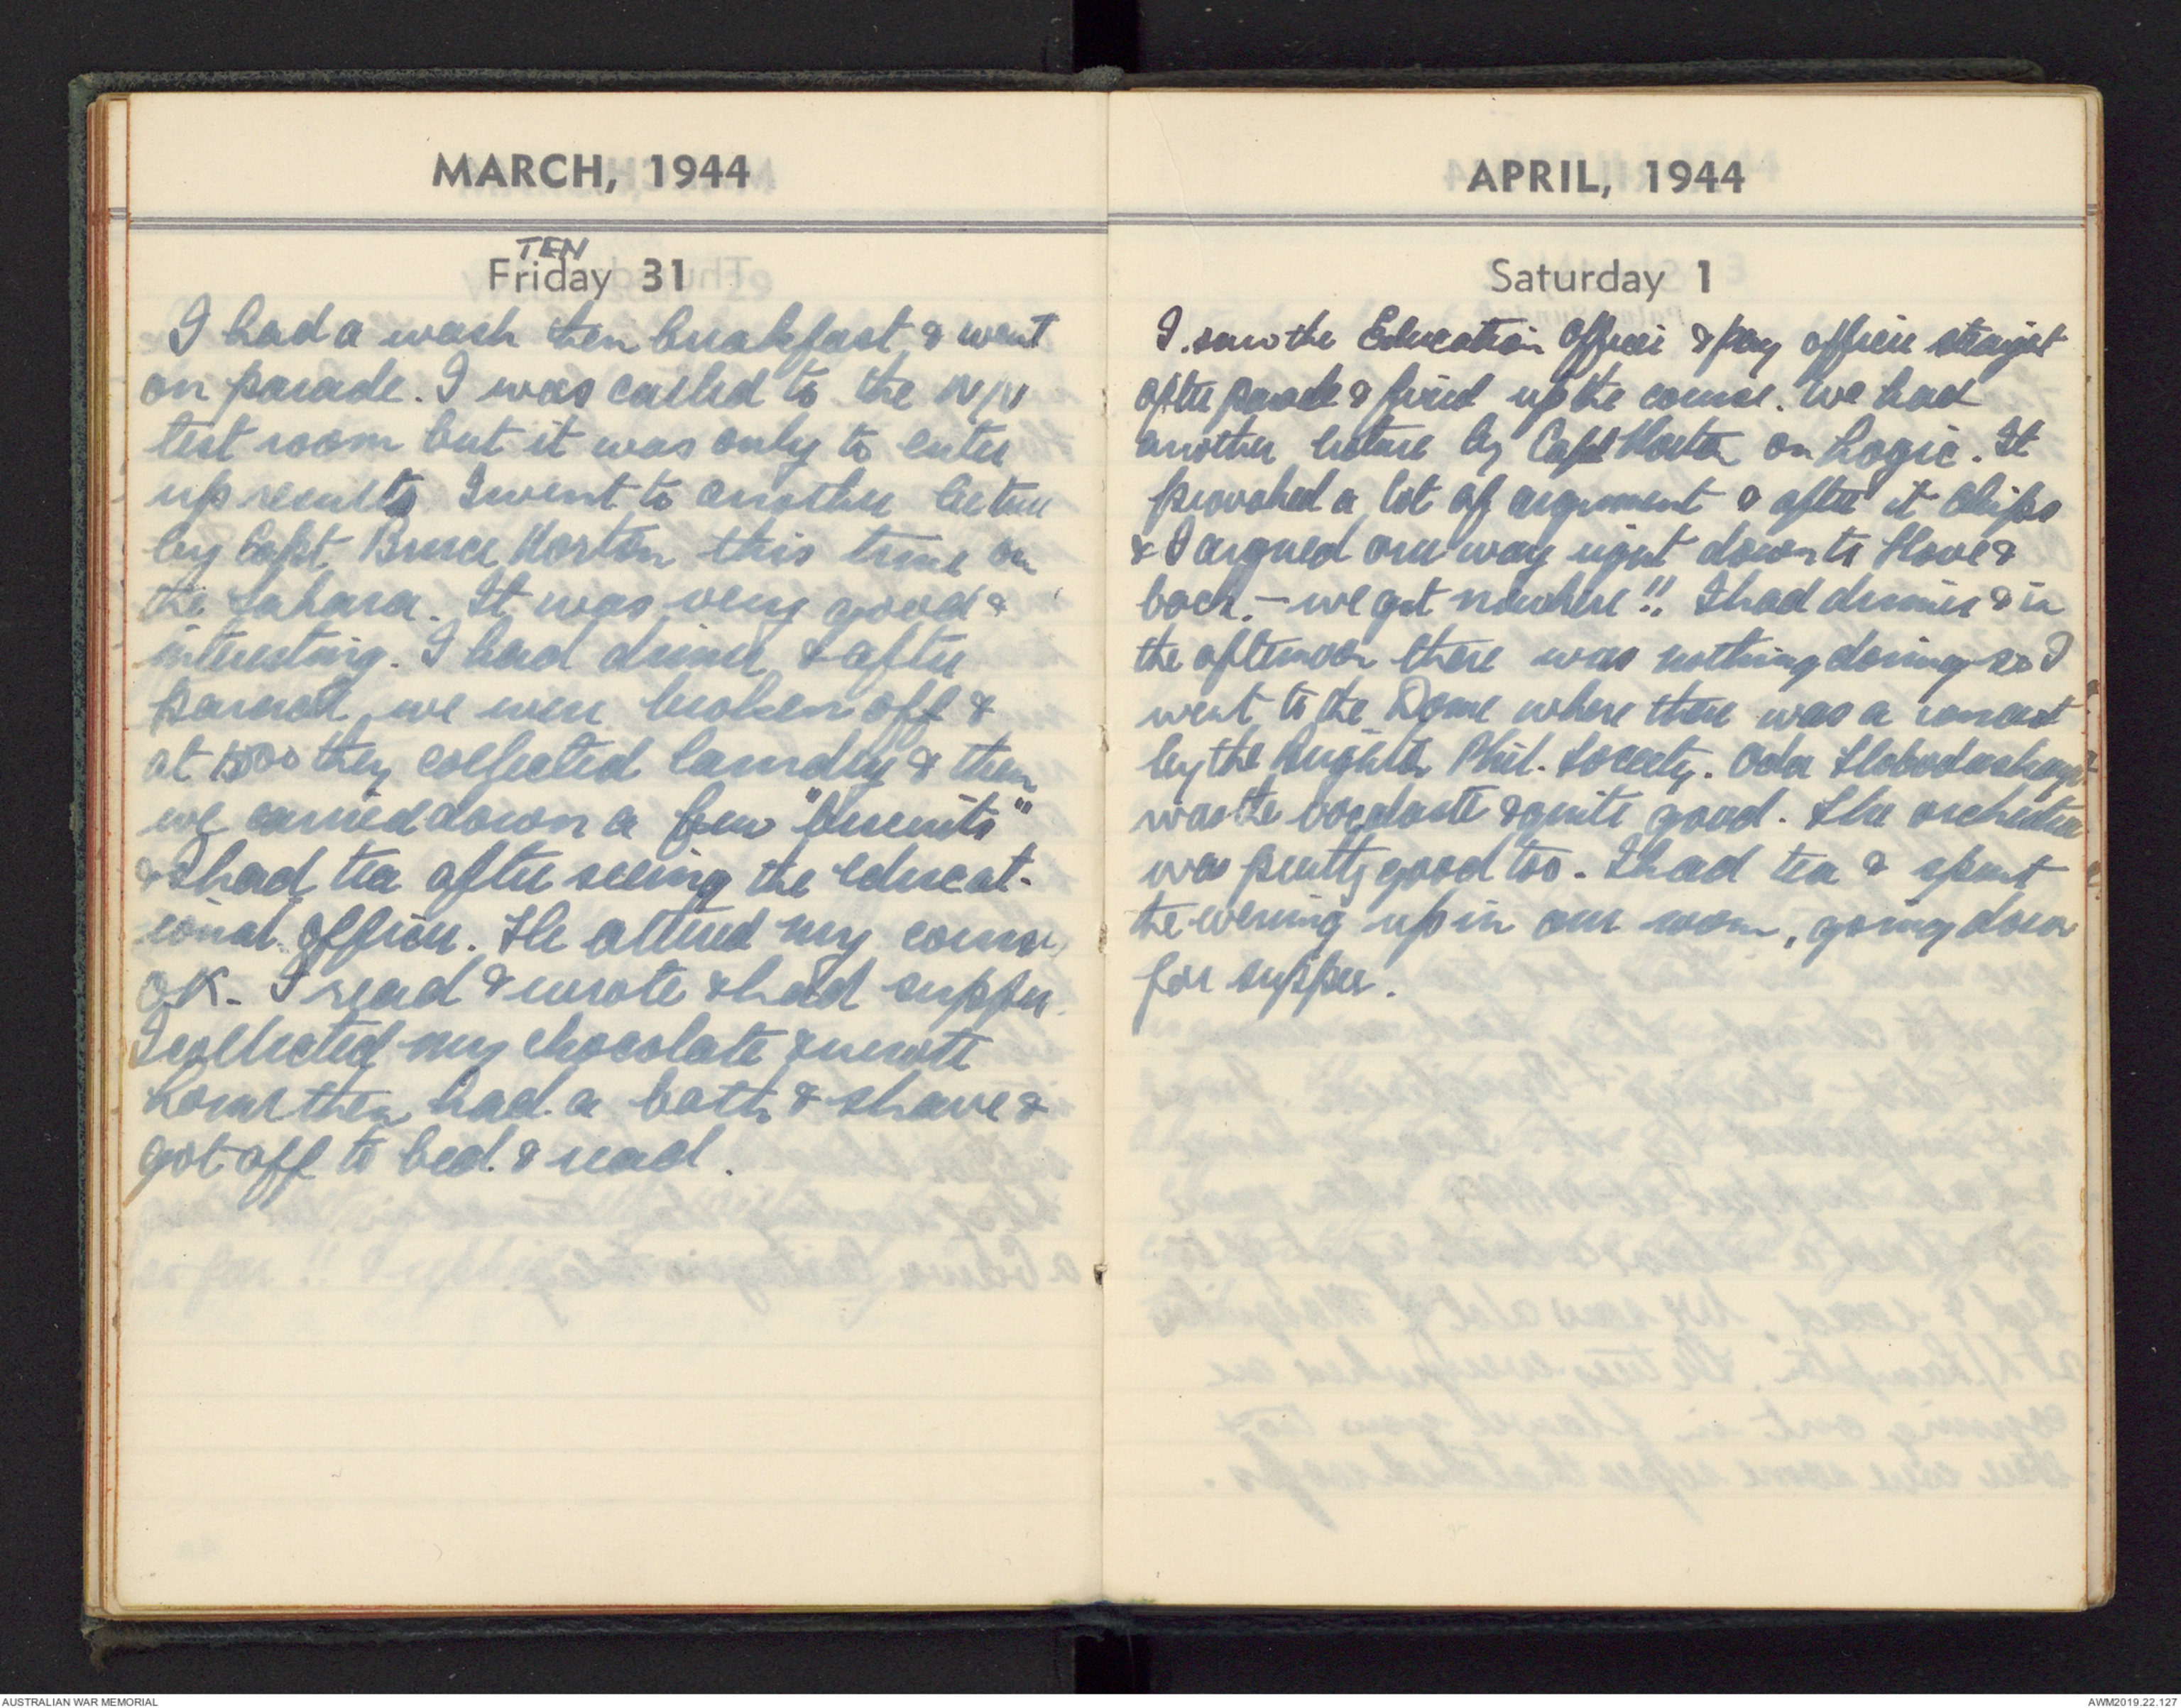 MARCH, 1944
TEN
Friday 31
I had a wash then breakfast & went
on parade. I was called to the N/V
test room but it was only to enter
up results I went to another lecture
by Capt. Bruce Horton this time on
the Sahara. It was very good &
interesting. I had dinner & after
parade, we were broken off &
at 1500 they collected laundry & then
we carried down a few "biscuits"
& I had tea after seeing the educat-
ional officer. He altered my course
OK. I read & wrote & had supper.
I collected my chocolate & wrote
home then had a bath & shave &
got off to bed & read.
APRIL, 1944
Saturday 1
I saw the Education Officer & pay officer straight
after parade & fixed up the course. We had
another lecture by Capt Horton on Logic. It
provoked a lot of argument & after it Chips
& I argued our way right down to Hove &
back. - we got nowhere!! I had dinner & in
the afternoon there was nothing doing so I
went to the Dome where there was a concert
by the Brighton Phil. Society. Oda Slobodaskaya
was the vocaloste & quite good. The orchestra
was pretty good too. I had tea & spent
the evening up in our room, going down
for supper.
AUSTRALIAN WAR MEMORIAL
AWM2019.22.127